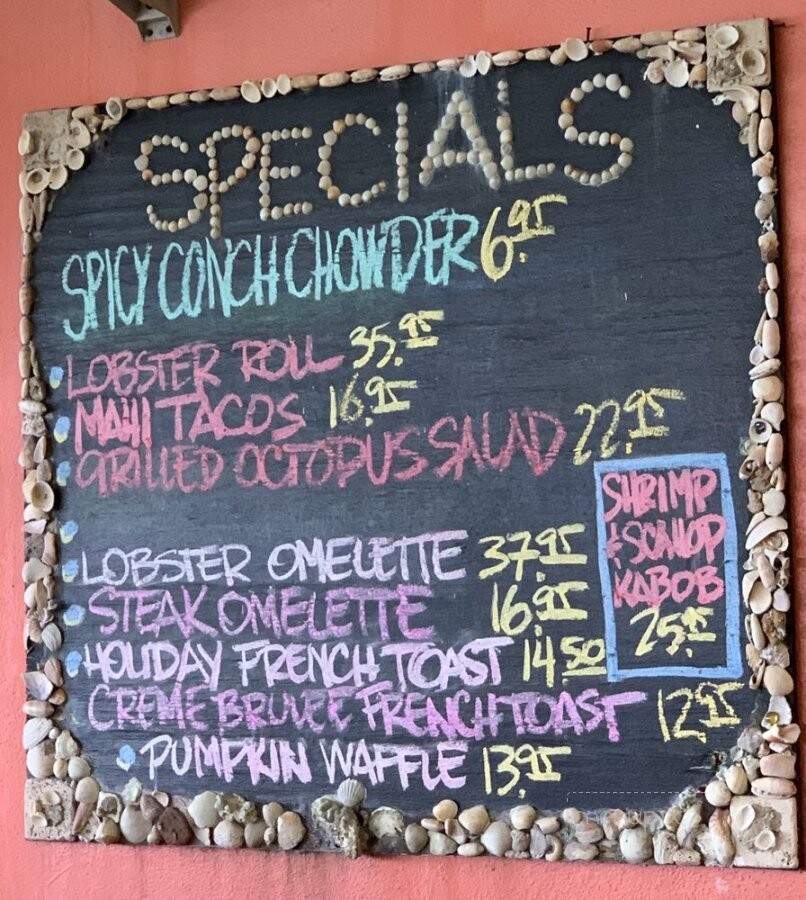 SPECIALS
SPICY CONCH CHOWDER 6.95
LOBSTER ROLL 35.95
MAHI TACOS 16.95
GRILLED OCTOPUS SALAD 22.95
SHRIMP
& SCALLOP
KABOB
25.95
LOBSTER OMELETTE 37.95
STEAK OMELETTE 16.95
HOLIDAY FRENCH TOAST 14.50
CREME BRULEE FRENCH TOAST 12.95
PUMPKIN WAFFLE 13.95